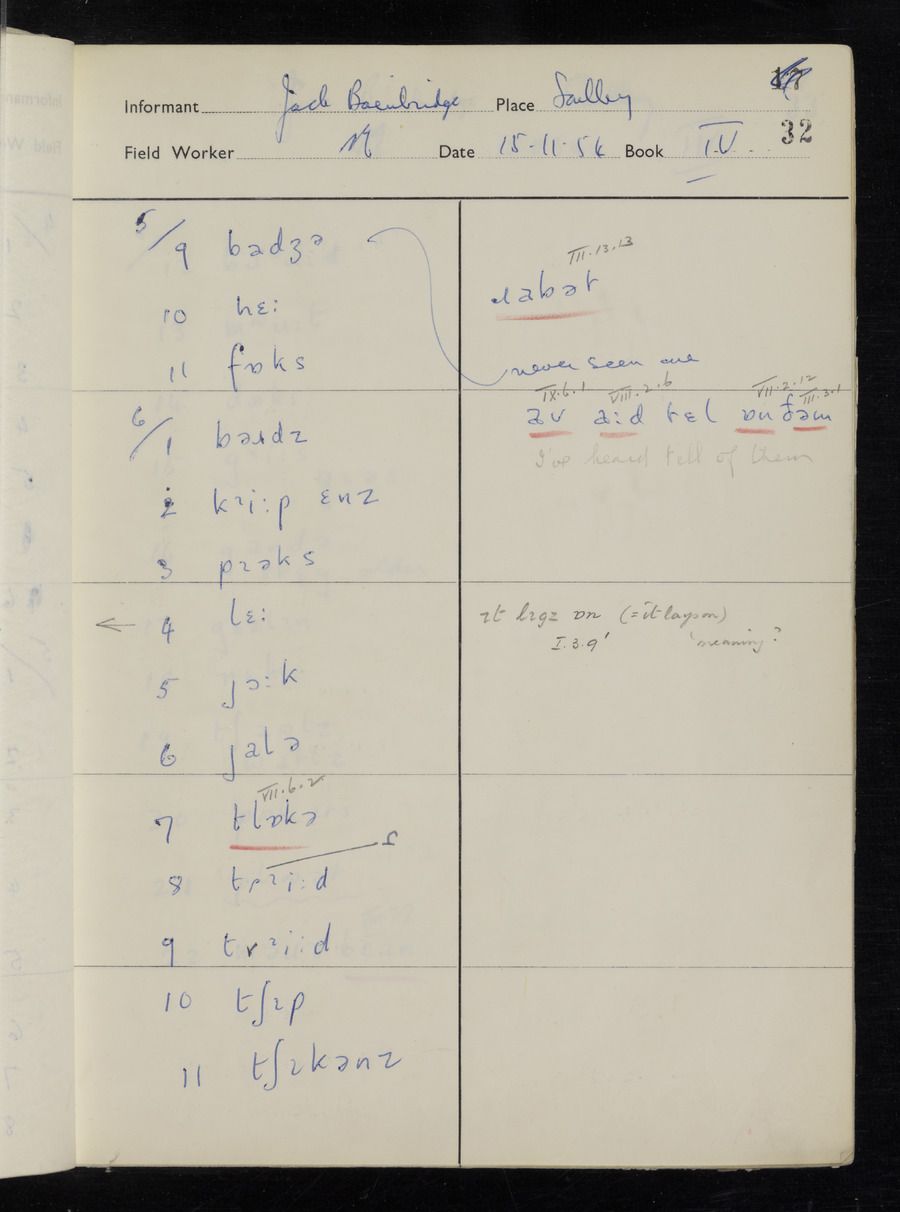 Informant Jack Bainbridge Place Salley
32
Field Worker Date 15-11-54 Book IV
5/9 badʒə
III.13.13
ɹabət
10 hɛ:
11 fɒks
never seen one
IX.6.1 VIII.2.6 VII.2.12 III.3.1
av a:d tɛl ɒn ðəm
6/1 bəɹdz
I've heard tell of them
2 kɹi:p ɛnz
3 pɹəks
4 lɛ:
ɪt lɪgz ɒn (= it lays on)
I.3.9' 'meaning?
5 jɔ:k
6 jalə
VII.6.2
7 tlɒkə
8 tri:d
9 tri:d
10 tʃɪp
11 tʃɪkənz